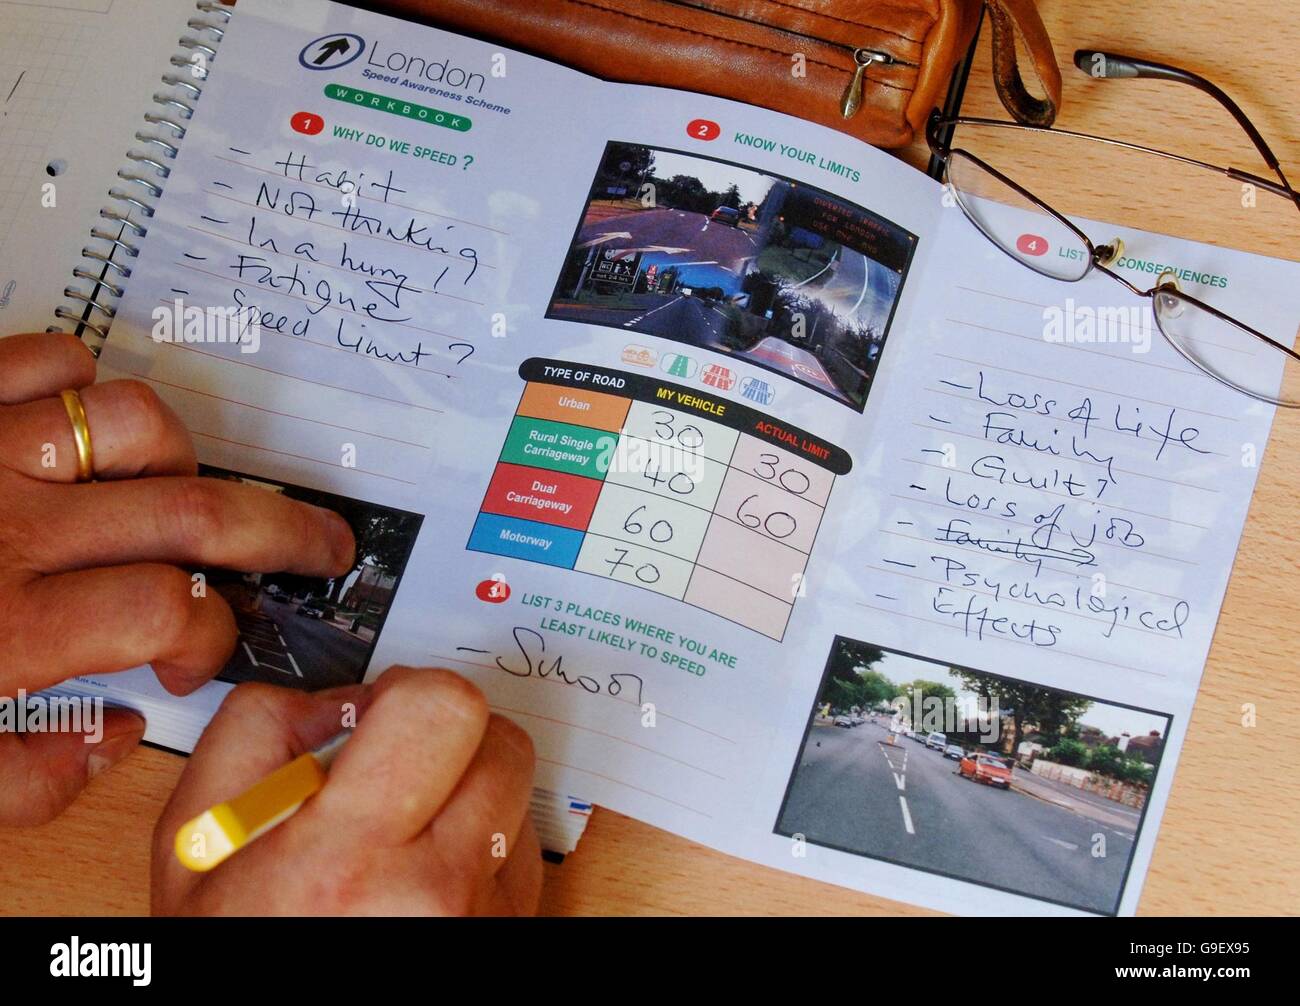 London
Speed Awareness Scheme
WORKBOOK
1 WHY DO WE SPEED ?
- Habit
- Not thinking
- In a hurry !
- Fatigue
- Speed Limit ?
2 KNOW YOUR LIMITS
DIVERTED TRAFFIC
FOR LONDON
USE M40 M40
TYPE OF ROAD MY VEHICLE ACTUAL LIMIT
Urban 30 30
Rural Single Carriageway 40 60
Dual Carriageway 60
Motorway 70
3 LIST 3 PLACES WHERE YOU ARE
LEAST LIKELY TO SPEED
- School
4 LIST CONSEQUENCES
- Loss of Life
- Family
- Guilt ?
- Loss of job
- Family
- Psychological
- Effects
alamy
alamy
Image ID: G9EX95
www.alamy.com